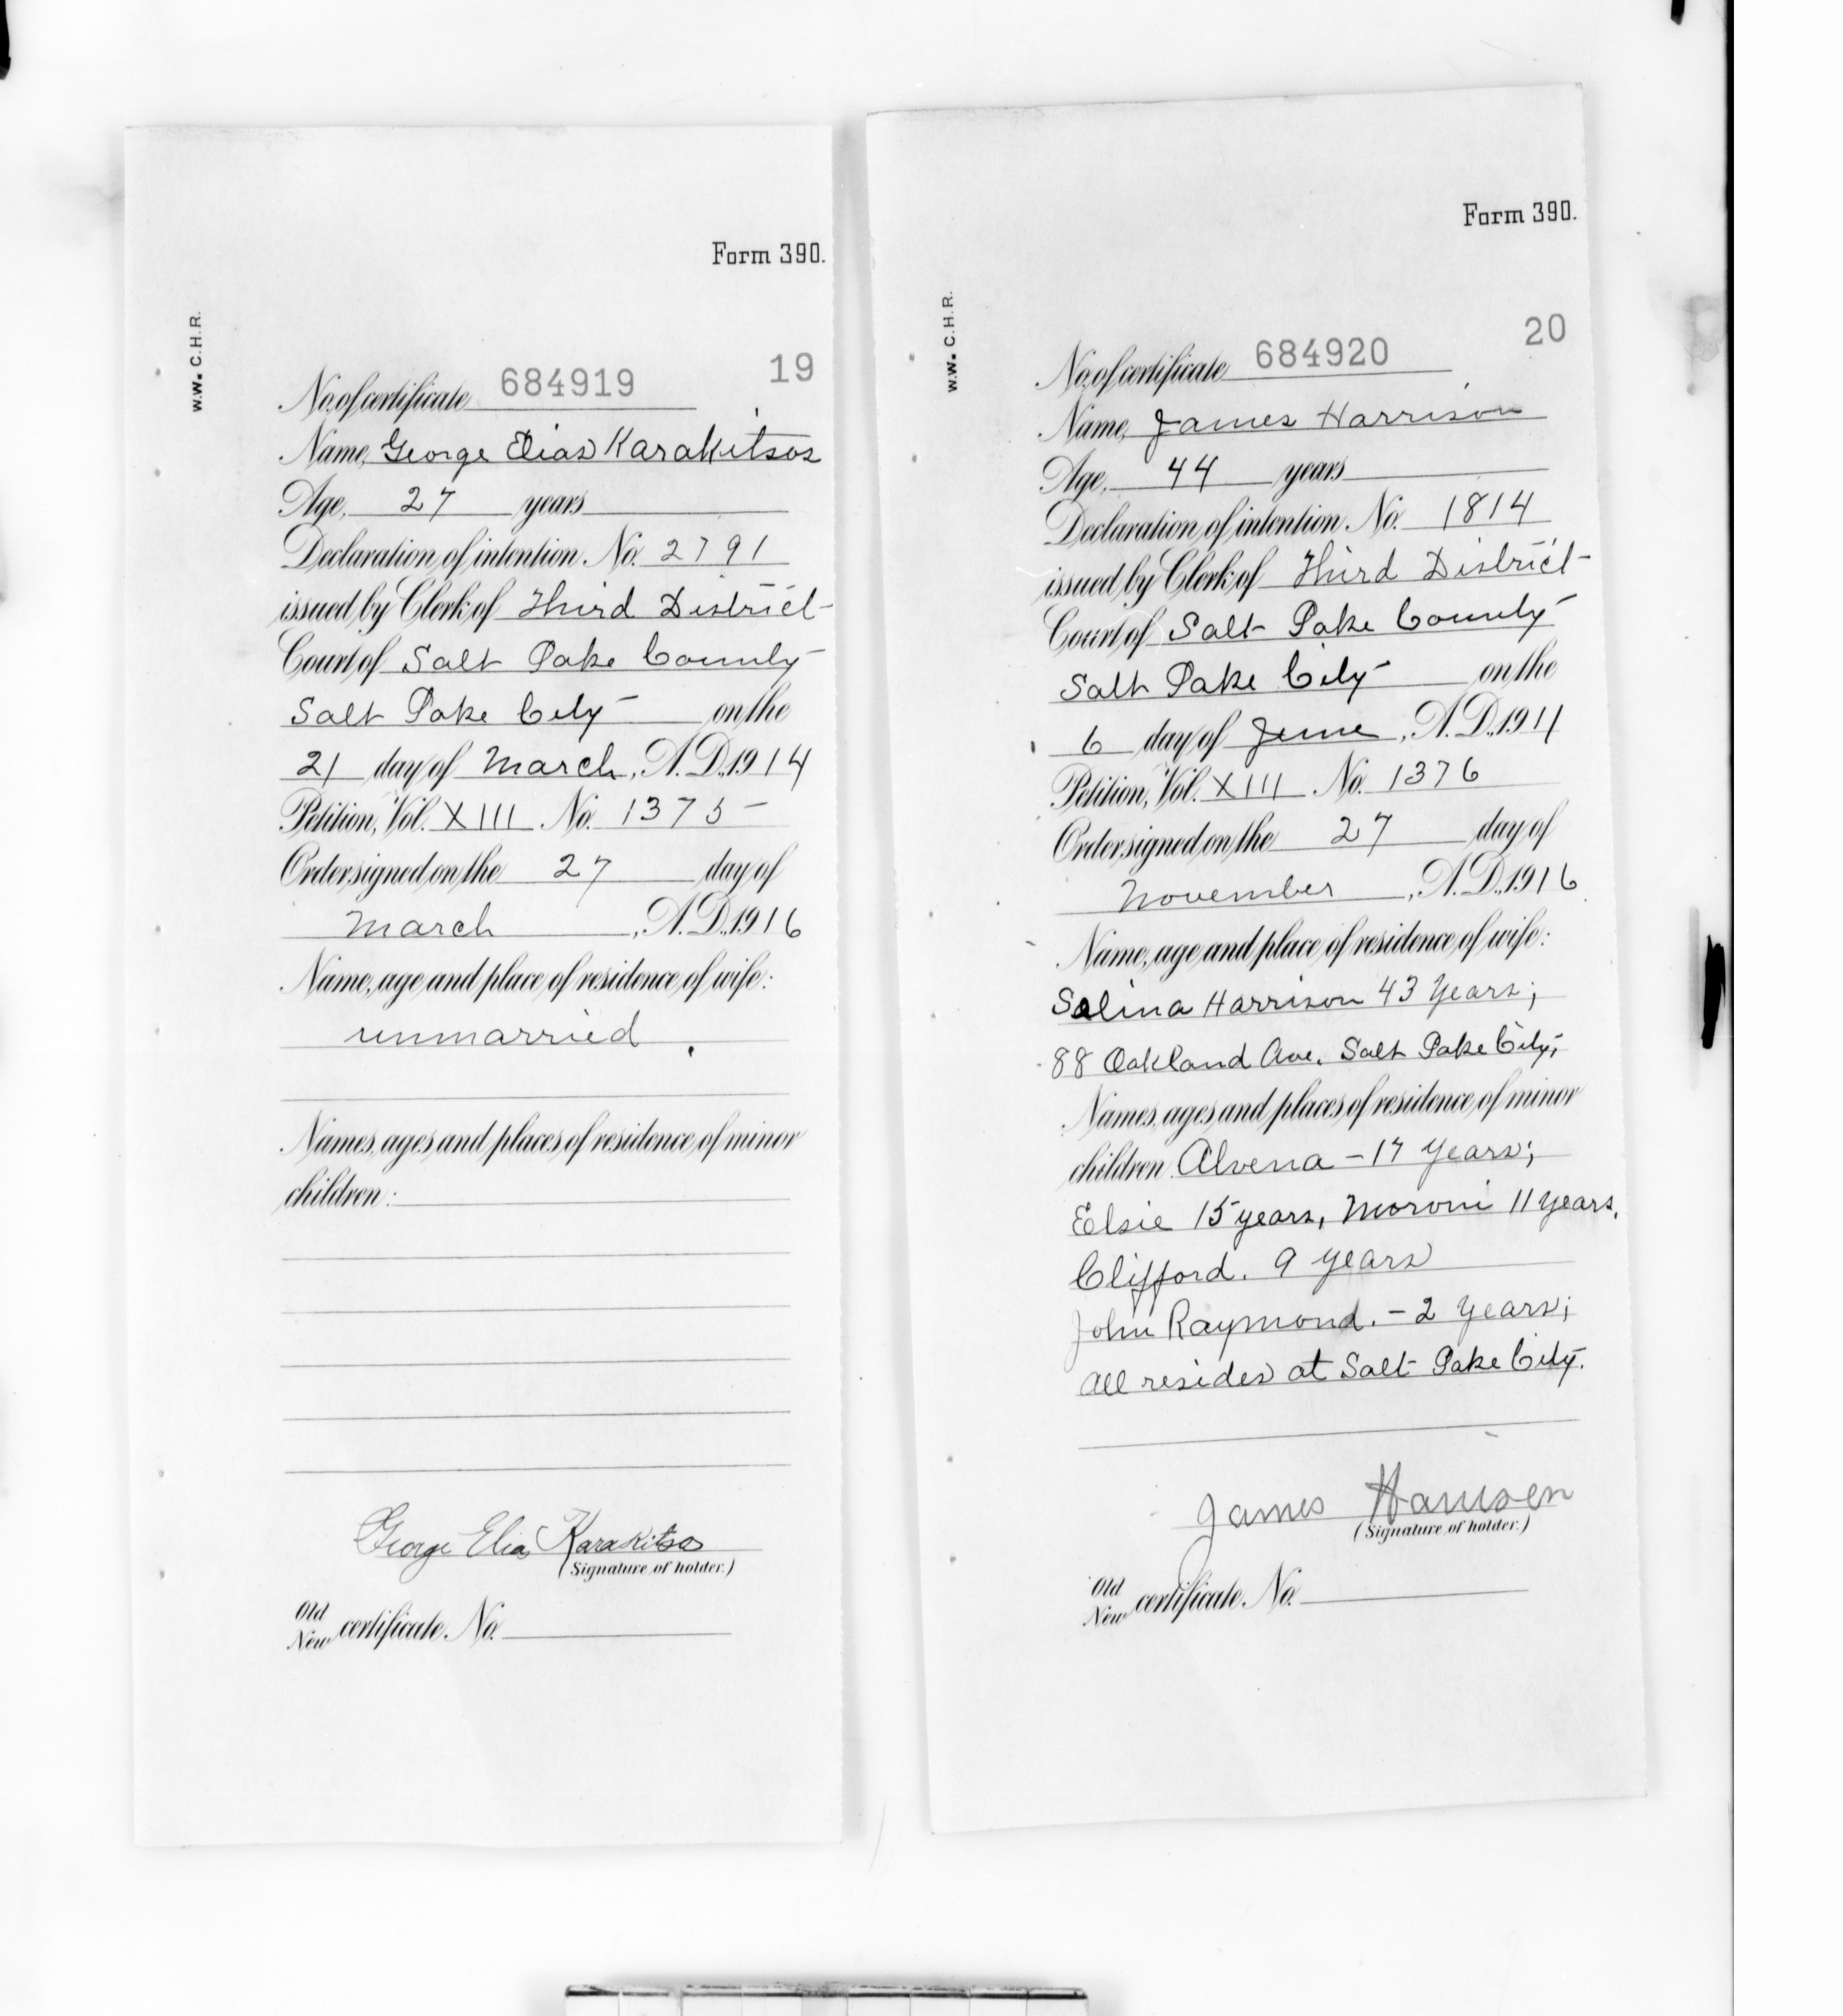 Form 390.
W.W. C.H.R.
19
No. of certificate 684919
Name, George Elias Karakitsos
Age, 27 years
Declaration of intention, No. 2791
issued by Clerk of Third District
Court of Salt Lake County
Salt Lake City on the
21 day of March, A.D. 1914
Petition, Vol. XIII No. 1375
Order signed on the 27 day of
March, A.D. 1916
Name, age and place of residence of wife:
unmarried
Names, ages and places of residence of minor
children:
George Elia Karakitsos
(Signature of holder.)
Old
New certificate, No.
Form 390.
W.W. C.H.R.
20
No. of certificate 684920
Name, James Harrison
Age, 44 years
Declaration of intention, No. 1814
issued by Clerk of Third District
Court of Salt Lake County
Salt Lake City on the
6 day of June, A.D. 1911
Petition, Vol. XIII No. 1376
Order signed on the 27 day of
November, A.D. 1916
Name, age and place of residence of wife:
Salina Harrison 43 years;
88 Oakland Ave, Salt Lake City;
Names, ages and places of residence of minor
children Alvena - 17 years;
Elsie 15 years, Moroni 11 years,
Clifford. 9 years
John Raymond. - 2 years;
all resides at Salt Lake City.
James Harrison
(Signature of holder.)
Old
New certificate, No.